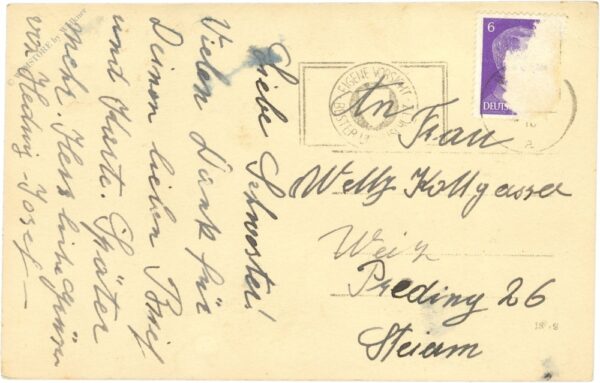 Liebe Schwester!
Vielen Dank für
Deinen lieben Brief
und Karte. Später
mehr. Herzliche Grüsse
von Hedwig - Josef -
6
DEUTS
EIGENE VORSICHT
An Frau
Kollgasser
Weiz
Preding 26
Steierm